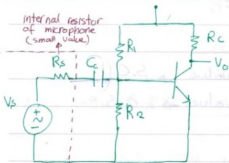 internal resistor
of microphone
(small value)
Rs
Cc
R1
R2
Rc
Vo
Vs